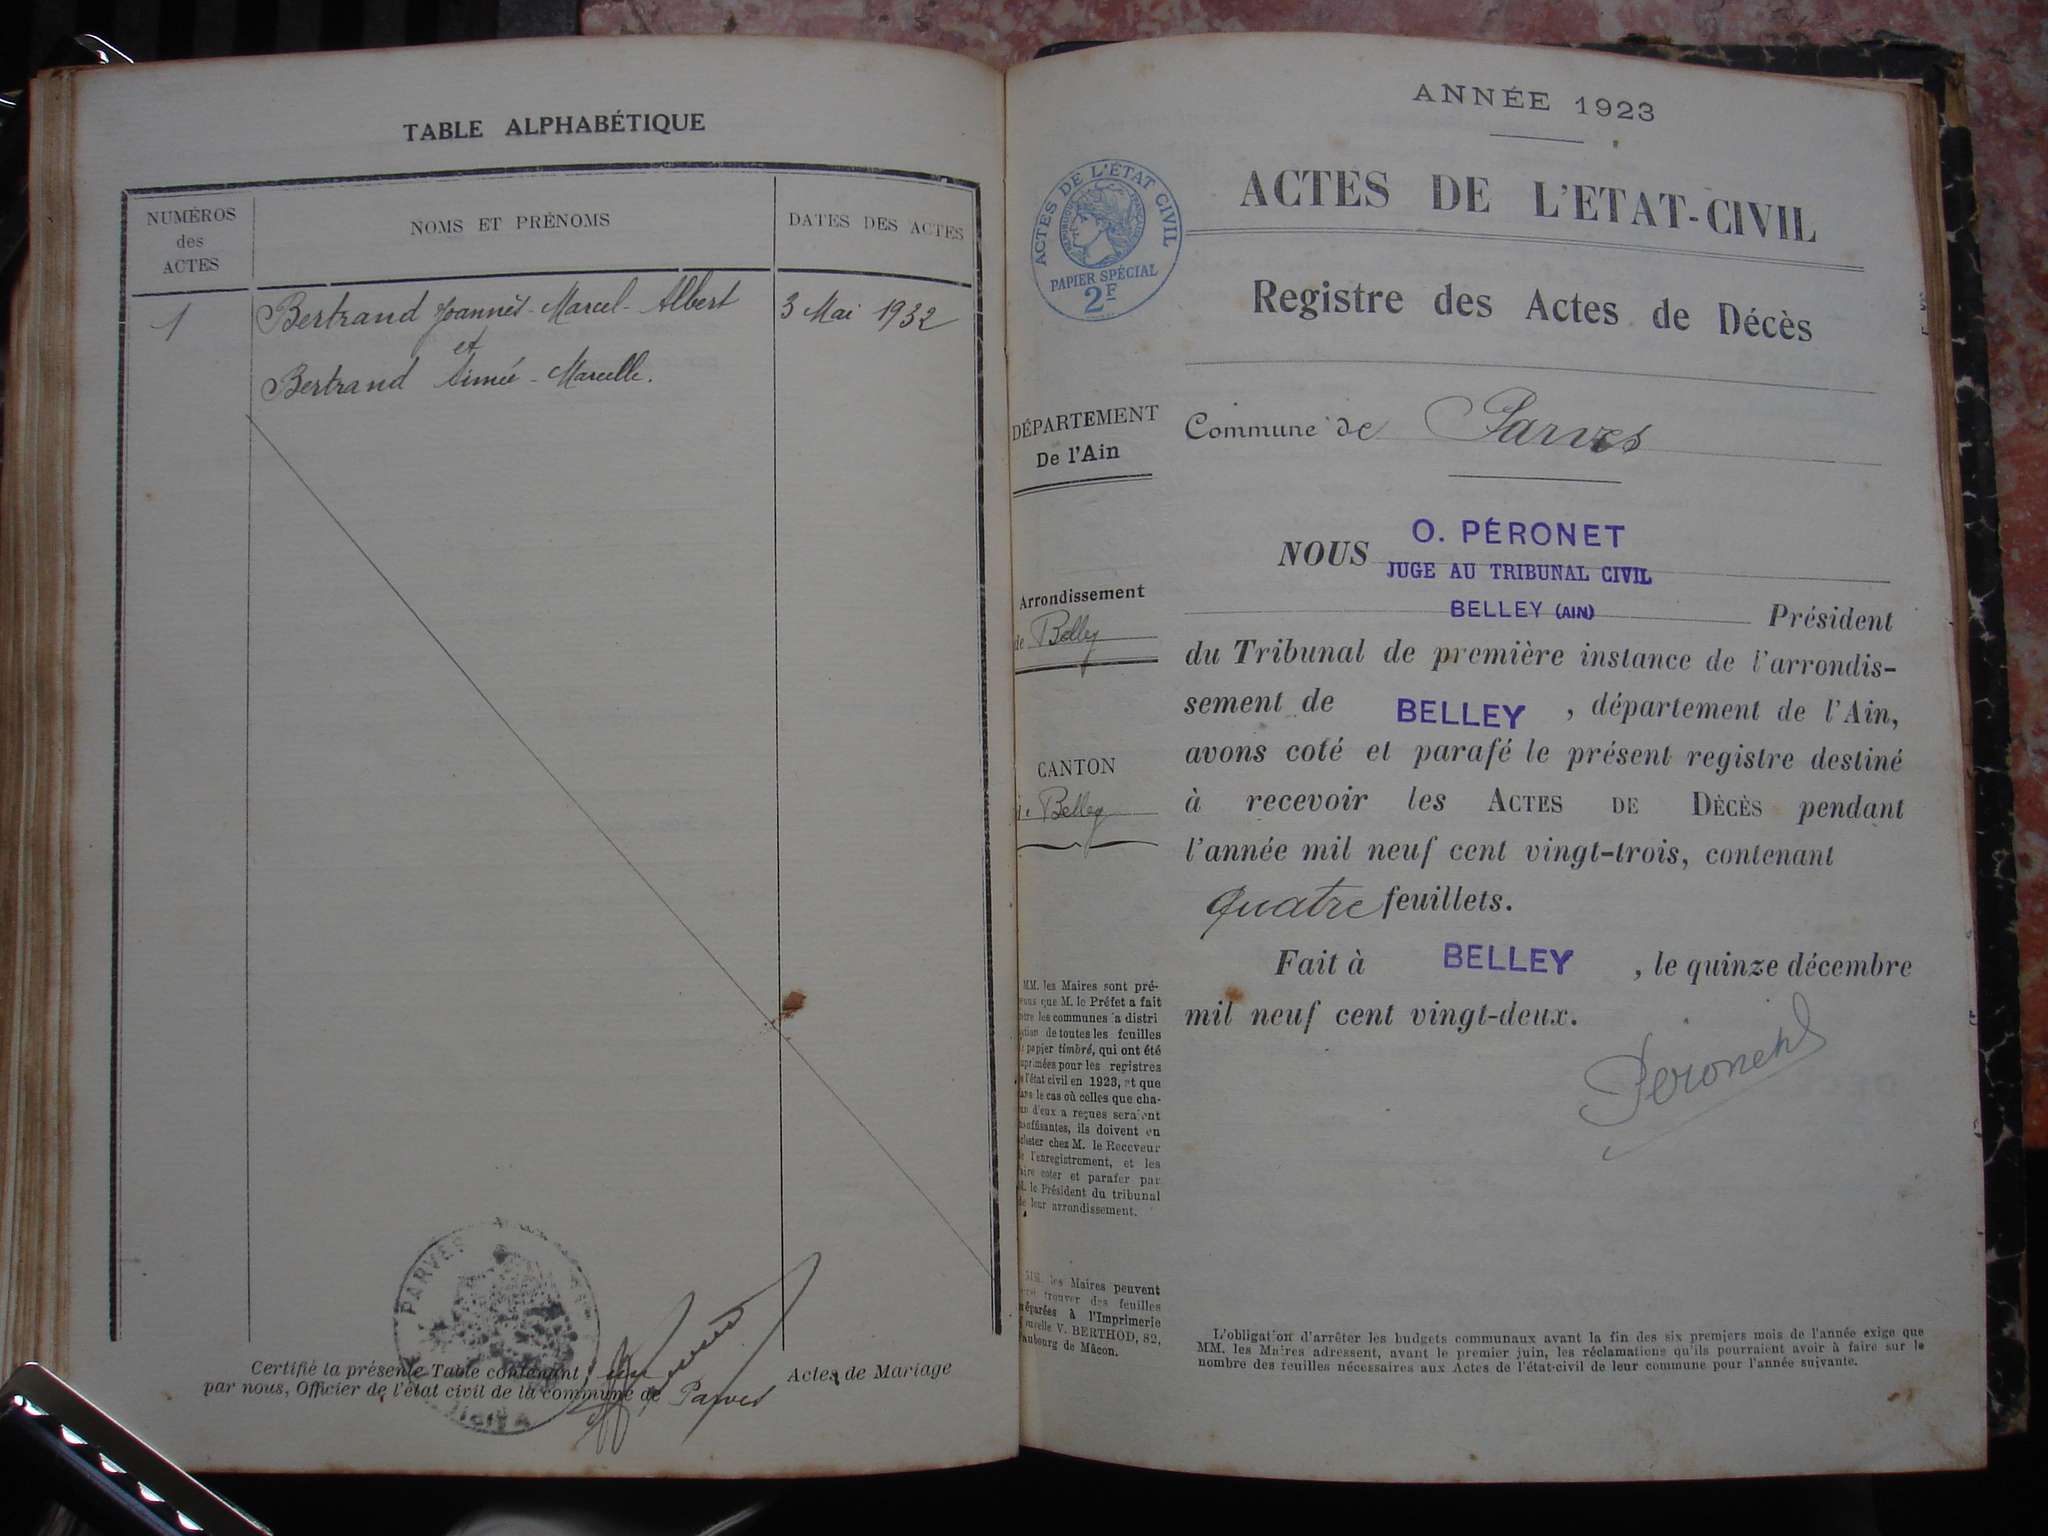 TABLE ALPHABÉTIQUE
NUMÉROS
des
ACTES
NOMS ET PRÉNOMS
DATES DES ACTES
1
Bertrand Joannès-Marcel-Albert
3 Mai 1932
et
Bertrand Aimée-Marcelle.
PARVES
Certifié la présente Table contenant un Actes de Mariage
par nous, Officier de l'état civil de la commune de Parves
ANNÉE 1923
ACTES DE L'ÉTAT CIVIL
RÉPUBLIQUE FRANÇAISE
PAPIER SPÉCIAL
2F
ACTES DE L'ETAT-CIVIL
Registre des Actes de Décès
DÉPARTEMENT
De l'Ain
Commune de Parves
Arrondissement
de Belley
CANTON
Belley
NOUS O. PÉRONET
JUGE AU TRIBUNAL CIVIL
BELLEY (AIN) Président
du Tribunal de première instance de l'arrondis-
sement de BELLEY, département de l'Ain,
avons coté et parafé le présent registre destiné
à recevoir les ACTES DE DÉCÈS pendant
l'année mil neuf cent vingt-trois, contenant
Quatre feuillets.
Fait à BELLEY, le quinze décembre
mil neuf cent vingt-deux.
Péronet
MM. les Maires sont pré-
que M. le Préfet a fait
les communes a distri
de toutes les feuilles
papier timbré, qui ont été
pour les registres
l'état civil en 1923, et que
le cas où celles que cha-
d'eux a reçues seraient
ils doivent en
chez M. le Receveur
l'enregistrement, et les
coter et parafer par
le Président du tribunal
de leur arrondissement.
les Maires peuvent
trouver des feuilles
à l'Imprimerie
V. BERTHOD, 82,
de Mâcon.
L'obligation d'arrêter les budgets communaux avant la fin des six premiers mois de l'année exige que
MM. les Maires adressent, avant le premier juin, les réclamations qu'ils pourraient avoir à faire sur le
nombre des feuilles nécessaires aux Actes de l'état-civil de leur commune pour l'année suivante.